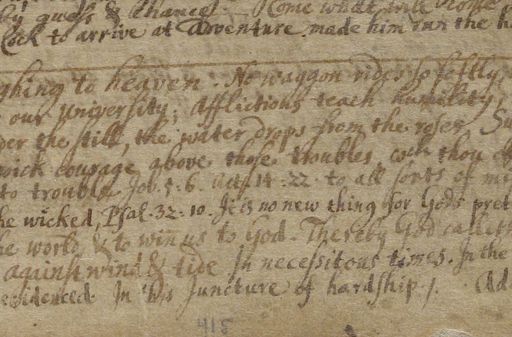 by guess & chance. Come what will come
Cock to arrive at Adventure made him run the ha
ghing to heaven. No waggon rides so softly
our University; Afflictions teach humility;
der the still, the water drops from the roses Su
courage above those troubles, which thou
to trouble Job. 5. 6. Act. 14. 22. to all sorts of mi
he wicked, Psal. 32. 10. It is no new thing for Gods pret
he world & to win us to God. Thereby God calleth
against wind & tide In necessitous times. In the
evidenced. In this Juncture of hardship. (Add
418